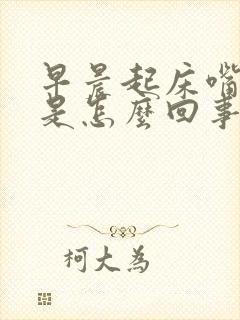 早晨起床嘴
是怎麼回事
柯大為